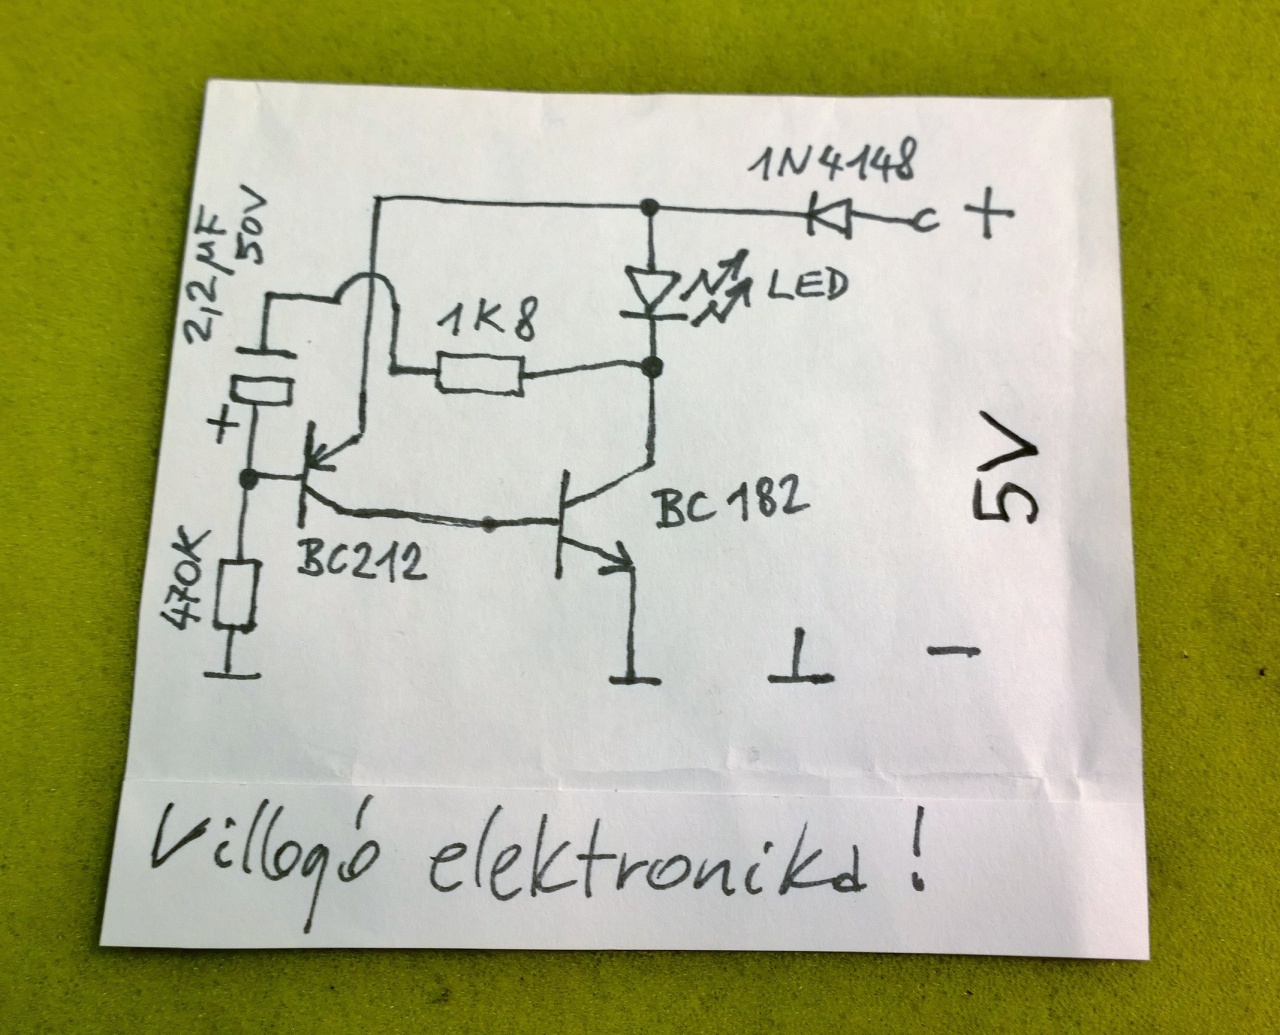 1N4148
+
2,2µF
50V
LED
1K8
+
5V
BC182
BC212
470K
−
Villogó elektronika!